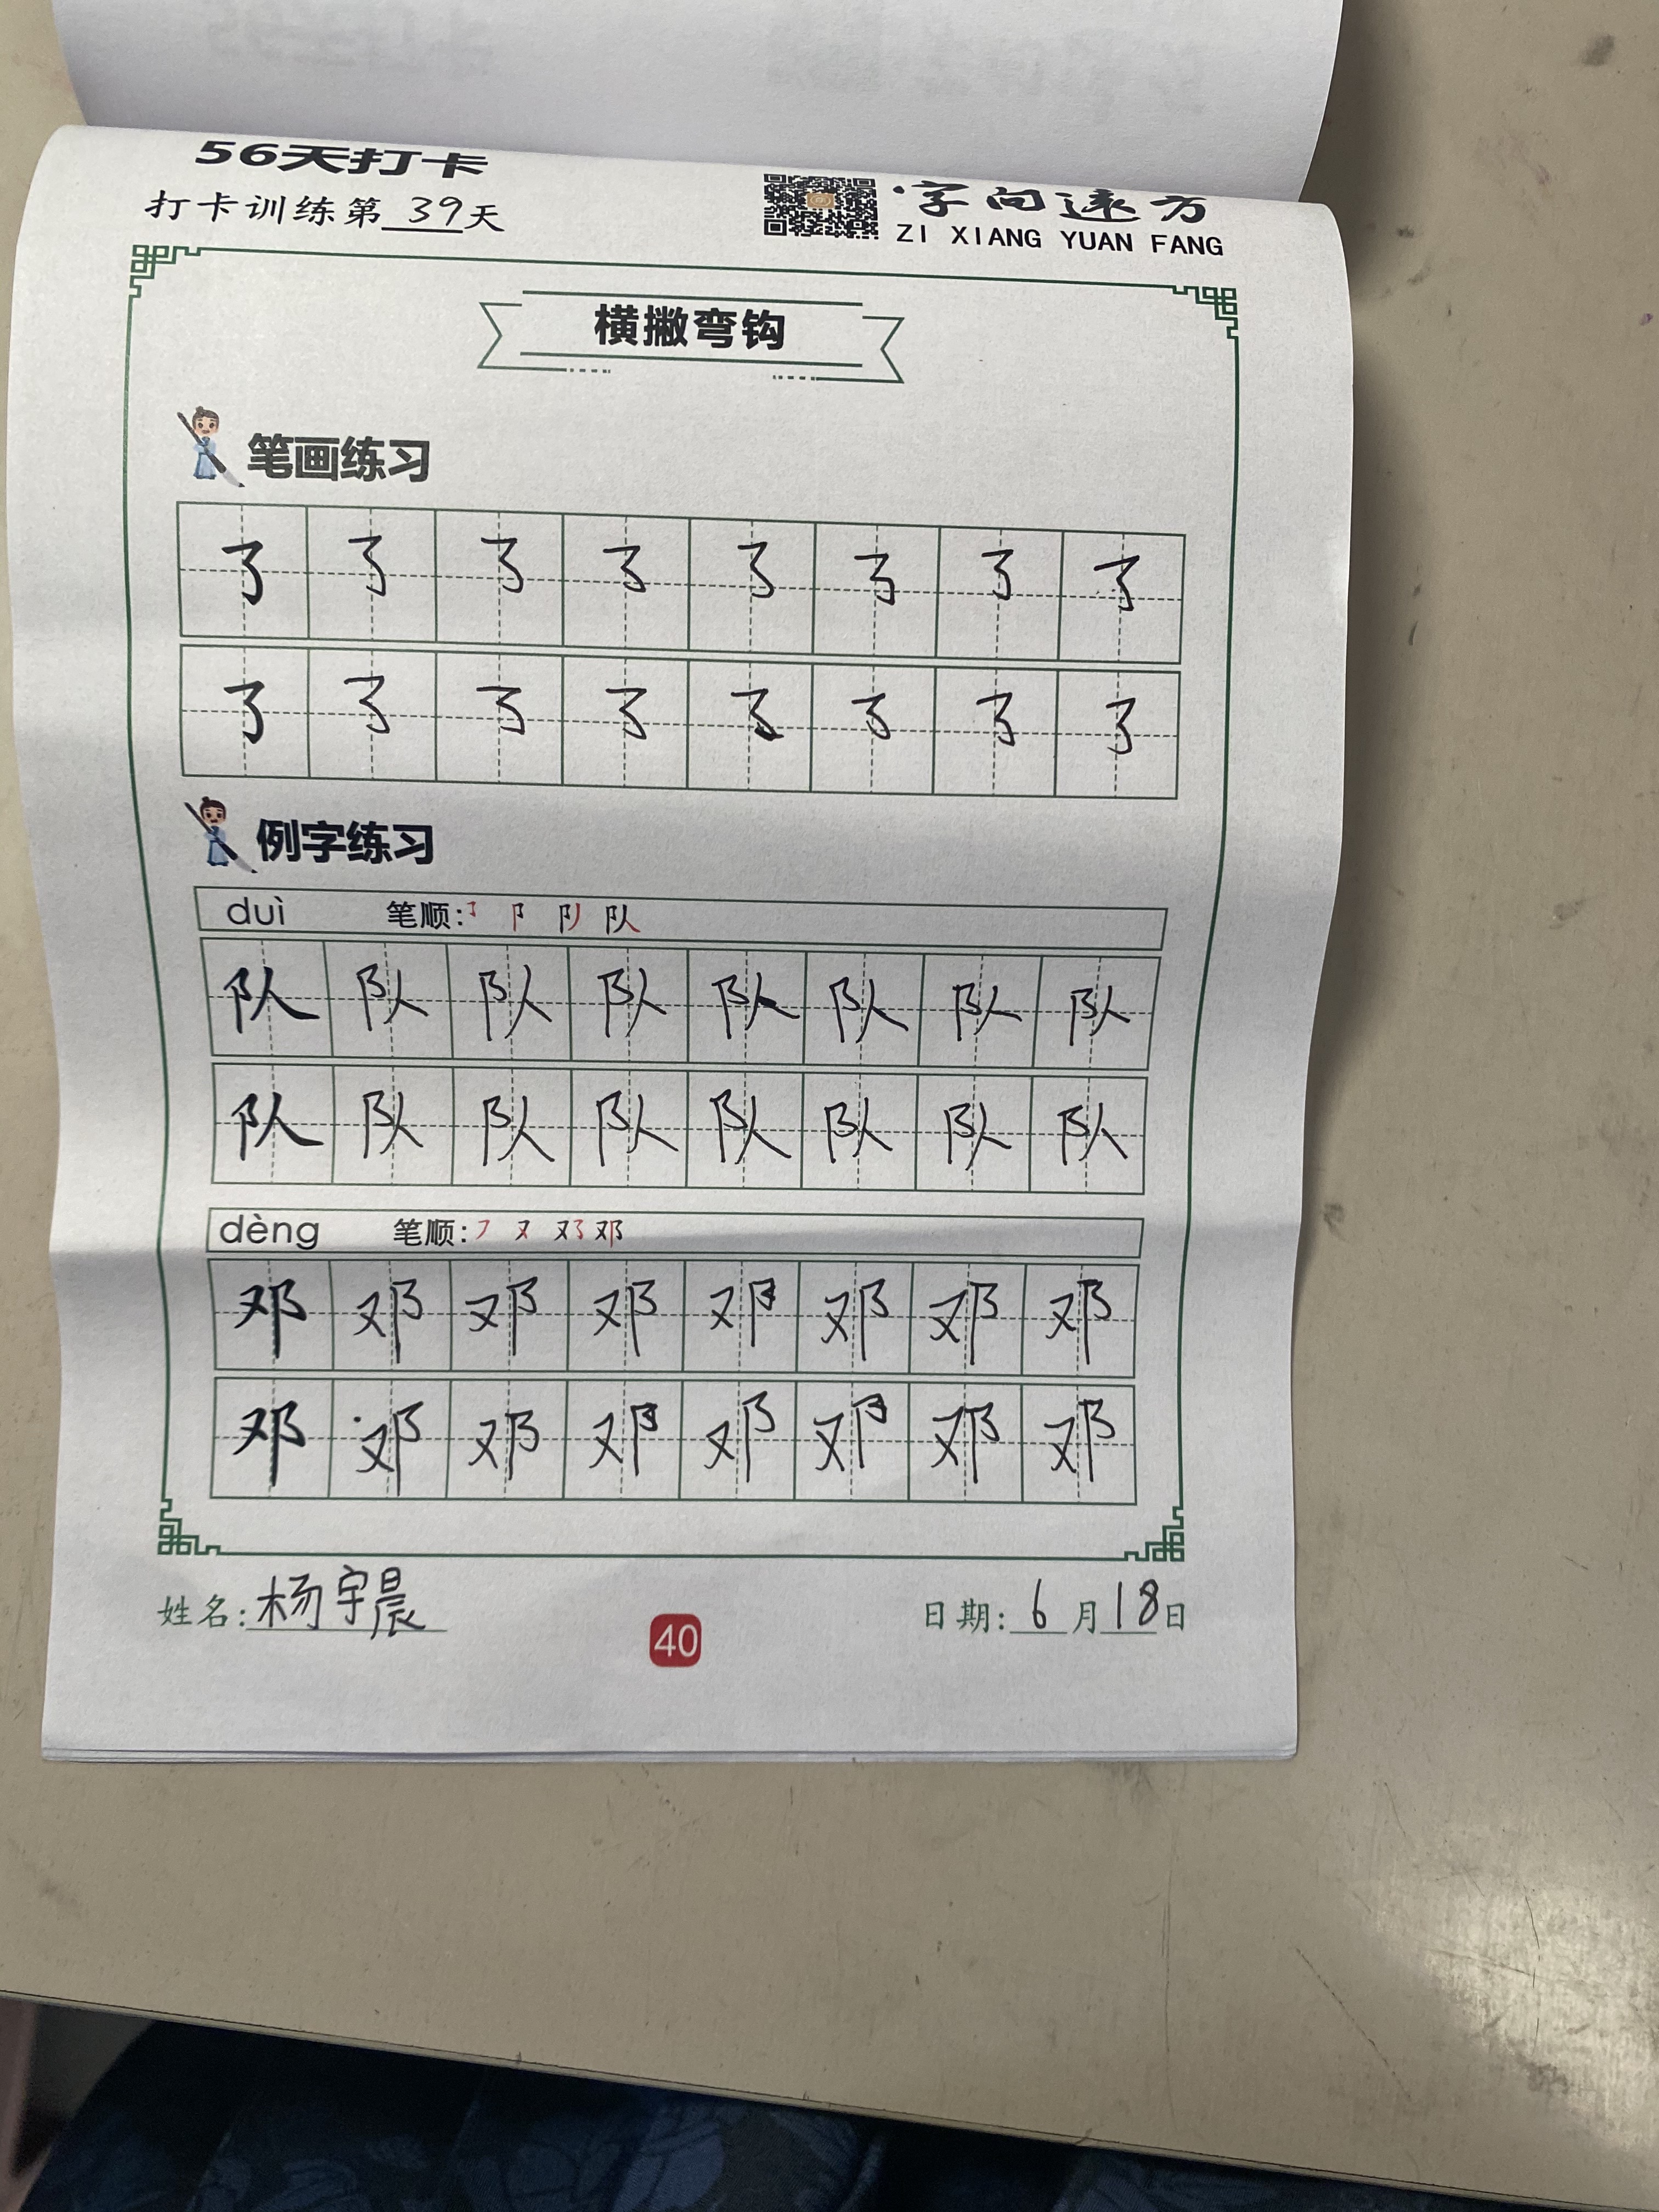 56天打卡
打卡训练第 39 天
字向远方
ZI XIANG YUAN FANG
横撇弯钩
笔画练习
㇌ ㇌ ㇌ ㇌ ㇌ ㇌ ㇌ ㇌
㇌ ㇌ ㇌ ㇌ ㇌ ㇌ ㇌ ㇌
例字练习
duì 笔顺: ㇌ 阝 队
队 队 队 队 队 队 队 队
队 队 队 队 队 队 队 队
dèng 笔顺: ㇇ 又 邓
邓 邓 邓 邓 邓 邓 邓 邓
邓 邓 邓 邓 邓 邓 邓 邓
姓名: 杨宇晨
日期: 6 月 18 日
40